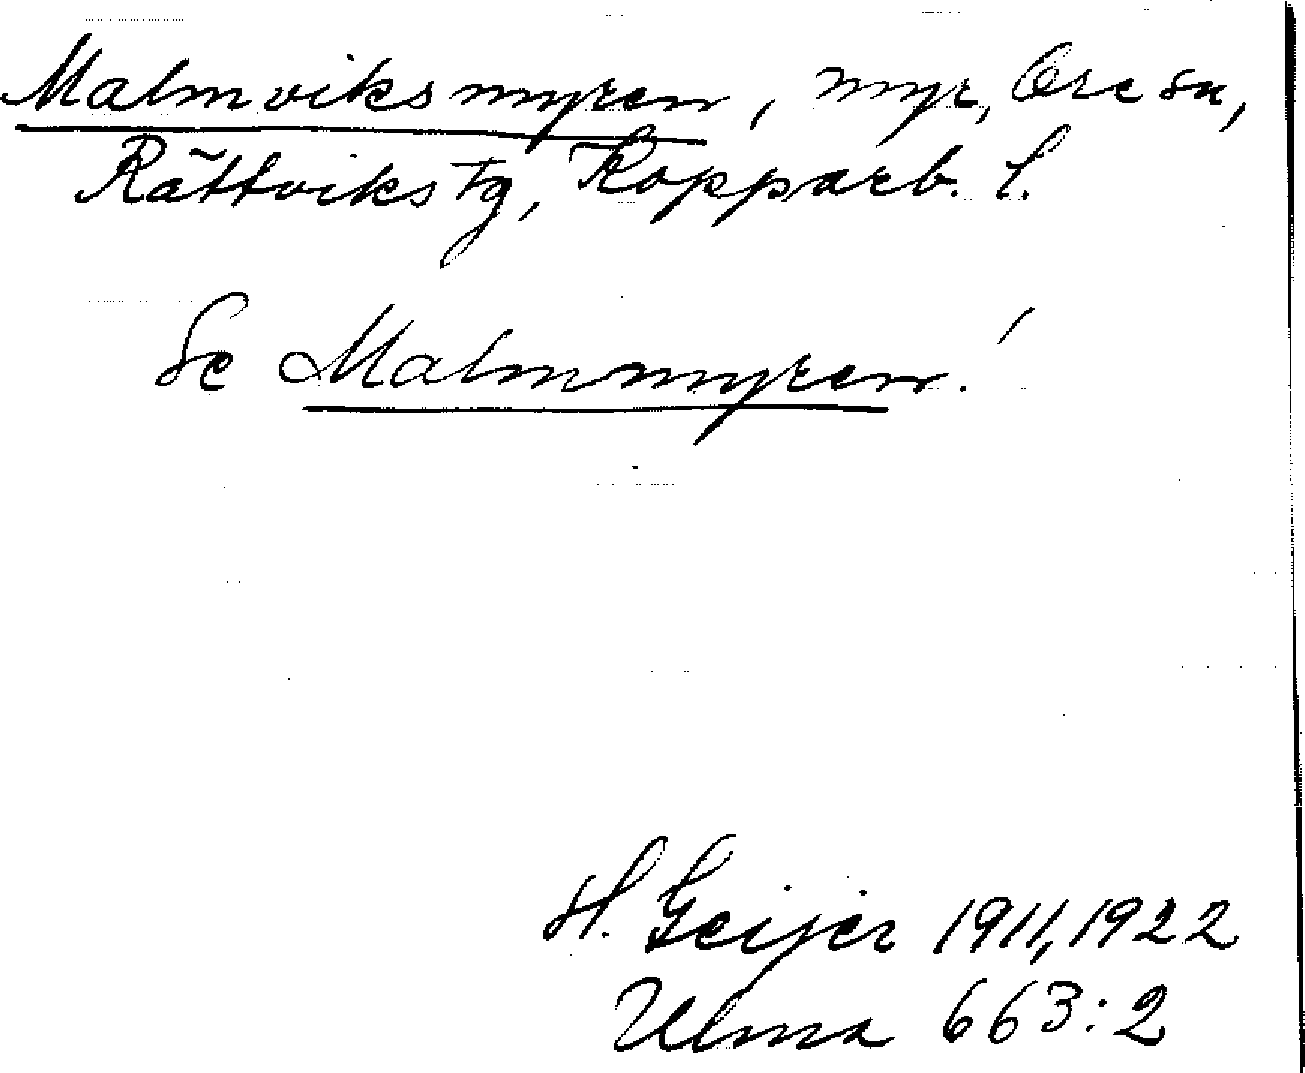 Malmviksmyren, myr, Ore sn,
Rättviks tg, Kopparb. l.
Se Malmmyren!
H. Geijer 1911, 1922
Ulma 663:2